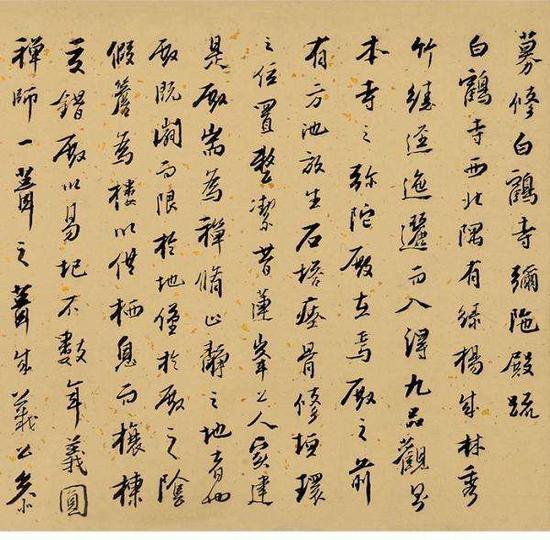 募修白鶴寺彌陁殿疏
白鶴寺西北隅有綠楊成林秀
竹逕迤邐而入得九品觀
本寺之弥陀殿在焉殿之前
有方池放生石塔瘞骨修垣環
之位置整潔昔蓮峯上人寔建
是殿耑為禪脩止靜之地者也
殿既而限於地僅於殿之陰
假簷為樓以供栖息而榱棟
交錯殿以易圮不數年義圓
禪師一葺之葺成義公示